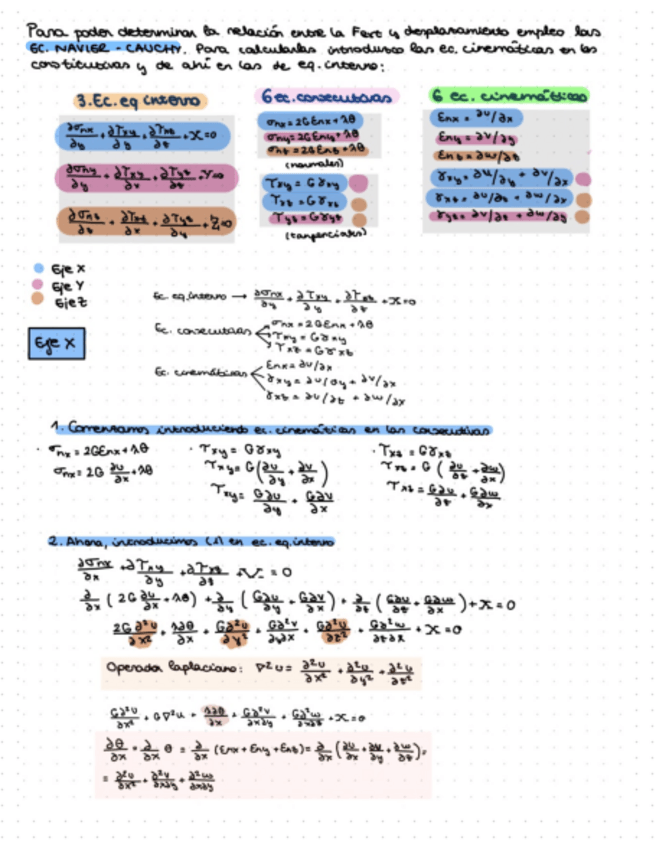 Para poder determinar la relación entre la Fext y desplazamiento empleo las
EC. NAVIER - CAUCHY. Para calcularlas introduzco las ec. cinemáticas en las
constitutivas y de ahí en las de eq. interno:
3. Ec. eq interno
∂σnx/∂y + ∂τxy/∂y + ∂τxz/∂z + X = 0
∂σny/∂y + ∂τxy/∂x + ∂τyz/∂z + Y = 0
∂σnz/∂z + ∂τxz/∂x + ∂τyz/∂y + Z = 0
6 ec. consecutivas
σnx = 2Gεnx + λθ
σny = 2Gεny + λθ
σnz = 2Gεnz + λθ
(normales)
τxy = Gγxy
τxz = Gγxz
τyz = Gγyz
(tangenciales)
6 ec. cinemáticas
εnx = ∂u/∂x
εny = ∂v/∂y
εnz = ∂w/∂z
γxy = ∂u/∂y + ∂v/∂x
γxz = ∂u/∂z + ∂w/∂x
γyz = ∂v/∂z + ∂w/∂y
Eje X
Eje Y
Eje Z
Eje X
Ec. eq. interno → ∂σnx/∂y + ∂τxy/∂y + ∂τxz/∂z + X = 0
Ec. consecutivas
σnx = 2Gεnx + λθ
τxy = Gγxy
τxz = Gγxz
Ec. cinemáticas
εnx = ∂u/∂x
γxy = ∂u/∂y + ∂v/∂x
γxz = ∂u/∂z + ∂w/∂x
1. Comenzamos introduciendo ec. cinemáticas en las consecutivas
· σnx = 2Gεnx + λθ
σnx = 2G ∂u/∂x + λθ
· τxy = Gγxy
τxy = G(∂u/∂y + ∂v/∂x)
τxy = G∂u/∂y + G∂v/∂x
· τxz = Gγxz
τxz = G(∂u/∂z + ∂w/∂x)
τxz = G∂u/∂z + G∂w/∂x
2. Ahora, introducimos (1) en ec. eq. interno
∂σnx/∂x + ∂τxy/∂y + ∂τxz/∂z + X = 0
∂/∂x (2G ∂u/∂x + λθ) + ∂/∂y (G∂u/∂y + G∂v/∂x) + ∂/∂z (G∂u/∂z + G∂w/∂x) + X = 0
2G∂²u/∂x² + λ∂θ/∂x + G∂²u/∂y² + G∂²v/∂y∂x + G∂²u/∂z² + G∂²w/∂z∂x + X = 0
Operador laplaciano: ∇²u = ∂²u/∂x² + ∂²u/∂y² + ∂²u/∂z²
G∂²u/∂x² + G∇²u + λ∂θ/∂x + G∂²v/∂x∂y + G∂²w + X = 0
∂θ/∂x = ∂/∂x θ = ∂/∂x (εnx + εny + εnz) = ∂/∂x (∂u/∂x + ∂v/∂y + ∂w/∂z) =
= ∂²u/∂x² + ∂²v/∂x∂y + ∂²w/∂x∂y